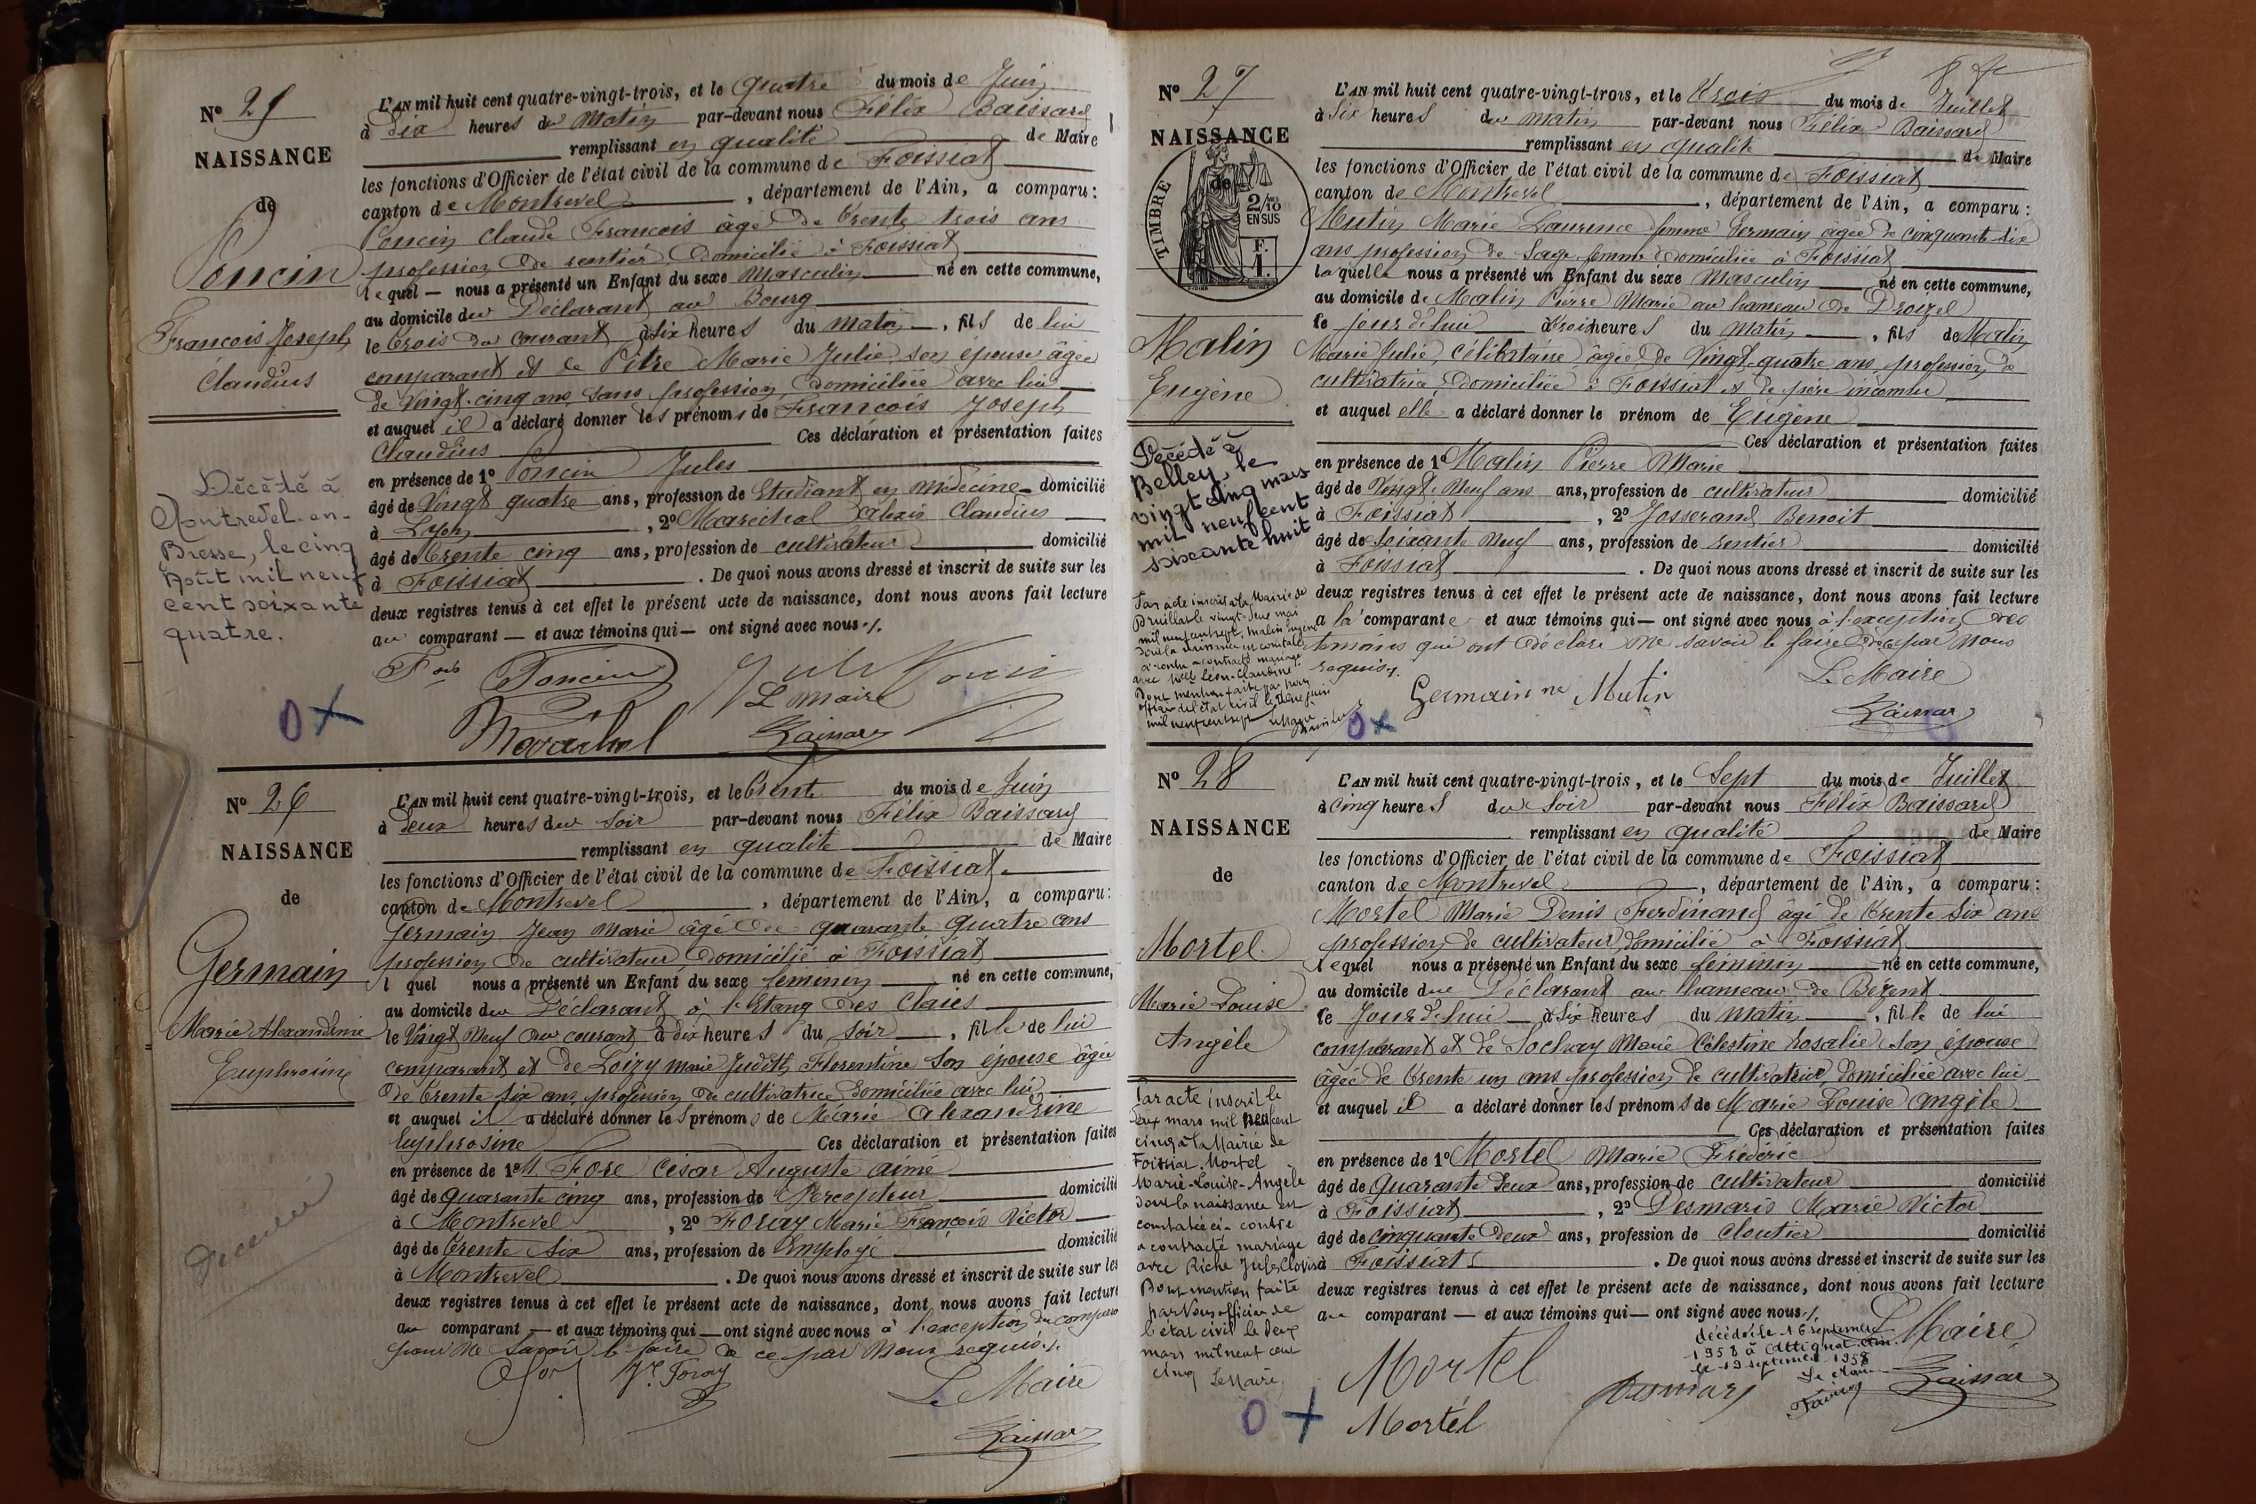 Nº 25
NAISSANCE
de
Poncin
François Joseph
Claudius
Décédé à
Montrevel-en-
Bresse, le cinq
Août mil neuf
cent soixante
quatre.
L'AN mil huit cent quatre-vingt-trois, et le quatre du mois de Juin
à dix heures du matin par-devant nous Félix Baissard
remplissant en qualité de Maire
les fonctions d'Officier de l'état civil de la commune de Foissiat
canton de Montrevel, département de l'Ain, a comparu:
Poncin Claude François âgé de trente trois ans
profession de rentier Domicilié à Foissiat
lequel — nous a présenté un Enfant du sexe masculin né en cette commune,
au domicile du Déclarant au Bourg
le trois du courant à six heures du matin, fils de lui
comparant et de Pitre Marie Julie son épouse âgée
de vingt-cinq ans sans profession domiciliée avec lui
et auquel il a déclaré donner les prénoms de François Joseph
Claudius Ces déclaration et présentation faites
en présence de 1º Poncin Jules
âgé de Vingt quatre ans, profession de Etudiant en médecine domicilié
à Lyon, 2º Maréchal Claudius
âgé de trente cinq ans, profession de cultivateur domicilié
à Foissiat. De quoi nous avons dressé et inscrit de suite sur les
deux registres tenus à cet effet le présent acte de naissance, dont nous avons fait lecture
au comparant — et aux témoins qui — ont signé avec nous ./.
Fois Poncin Jules Poncin
Le Maire
Marechal Baissard
0 X
Nº 26
NAISSANCE
de
Germain
Marie Alexandrine
Euphrosine
Décédée
L'AN mil huit cent quatre-vingt-trois, et le trente du mois de Juin
à deux heures du soir par-devant nous Félix Baissard
remplissant en qualité de Maire
les fonctions d'Officier de l'état civil de la commune de Foissiat
canton de Montrevel, département de l'Ain, a comparu:
Germain Jean Marie âgé de quarante quatre ans
profession de cultivateur domicilié à Foissiat
l quel nous a présenté un Enfant du sexe féminin né en cette commune,
au domicile du Déclarant à l'Etang des Claies
le Vingt neuf du courant à dix heures du soir, fille de lui
comparant et de Loizy Marie Judith Florentine son épouse âgée
de trente six ans profession de cultivatrice domiciliée avec lui
et auquel il a déclaré donner les prénoms de Marie Alexandrine
Euphrosine Ces déclaration et présentation faites
en présence de 1º M. César Auguste aimé
âgé de quarante cinq ans, profession de Percepteur domicilié
à Montrevel, 2º Foray Marie François Victor
âgé de trente six ans, profession de Employé domicilié
à Montrevel. De quoi nous avons dressé et inscrit de suite sur les
deux registres tenus à cet effet le présent acte de naissance, dont nous avons fait lecture
au comparant — et aux témoins qui — ont signé avec nous à l'exception du comparant
pour ne savoir le faire de ce par nous requis ./.
Vr Foray
Le Maire
Baissard
Nº 27
NAISSANCE
de
TIMBRE
2/10
EN SUS
F.
1.
Malin
Eugène
Décédé à
Belley le
vingt cinq mars
mil neuf cent
soixante huit
Par acte inscrit à la Mairie de
le vingt-deux mai
mil neuf cent sept, Malin Eugène
dont la naissance est constatée
ci-contre a contracté mariage
avec Léon Claudine
Dont mention faite par nous
officier de l'état civil le
mil neuf cent sept
L'AN mil huit cent quatre-vingt-trois, et le trois du mois de Juillet
à six heures du matin par-devant nous Félix Baissard
remplissant en qualité de Maire
les fonctions d'Officier de l'état civil de la commune de Foissiat
canton de Montrevel, département de l'Ain, a comparu:
Mutin Marie Laurence femme Germain âgée de cinquante six
ans profession de sage femme domiciliée à Foissiat
laquelle nous a présenté un Enfant du sexe masculin né en cette commune,
au domicile de Malin Pierre Marie au hameau de
le jour d'hui à trois heures du matin, fils de Malin
Marie Julie, célibataire âgée de Vingt-quatre ans profession de
cultivatrice domiciliée à Foissiat et de père inconnu
et auquel elle a déclaré donner le prénom de Eugène
Ces déclaration et présentation faites
en présence de 1º Malin Pierre Marie
âgé de Vingt-Neuf ans ans, profession de cultivateur domicilié
à Foissiat, 2º Josserand Benoit
âgé de soixante neuf ans, profession de rentier domicilié
à Foissiat. De quoi nous avons dressé et inscrit de suite sur les
deux registres tenus à cet effet le présent acte de naissance, dont nous avons fait lecture
à la comparante et aux témoins qui — ont signé avec nous à l'exception des
témoins qui ont déclaré ne savoir le faire de ce par nous
requis ./.
Le Maire
Germain née Mutin
Baissard
0 X
Nº 28
NAISSANCE
de
Mortel
Marie Louise
Angèle
Par acte inscrit le
deux mars mil neuf cent
cinq à la Mairie de
Foissiat, Mortel
Marie-Louise-Angèle
dont la naissance est
constatée ci-contre
a contracté mariage
avec Riche Jules Clovis
Dont mention faite
par Nous officier de
l'état civil le deux
mars mil neuf cent
cinq Le Maire
L'AN mil huit cent quatre-vingt-trois, et le Sept du mois de Juillet
à cinq heures du soir par-devant nous Félix Baissard
remplissant en qualité de Maire
les fonctions d'Officier de l'état civil de la commune de Foissiat
canton de Montrevel, département de l'Ain, a comparu:
Mortel Marie Denis Ferdinand âgé de trente six ans
profession de cultivateur domicilié à Foissiat
lequel nous a présenté un Enfant du sexe féminin né en cette commune,
au domicile du Déclarant au hameau de Bezent
le Jour d'hui à six heures du matin, fille de lui
comparant et de Sochay Marie Célestine Rosalie son épouse
âgée de trente un ans profession de cultivatrice domiciliée avec lui
et auquel il a déclaré donner les prénoms de Marie Louise Angèle
Ces déclaration et présentation faites
en présence de 1º Mortel Marie Frédéric
âgé de Quarante Deux ans, profession de cultivateur domicilié
à Foissiat, 2º Desmaris Marie Victor
âgé de cinquante Deux ans, profession de cloutier domicilié
à Foissiat. De quoi nous avons dressé et inscrit de suite sur les
deux registres tenus à cet effet le présent acte de naissance, dont nous avons fait lecture
au comparant — et aux témoins qui — ont signé avec nous ./.
Le Maire
décédée le 16 septembre
1958 à Attignat Ain.
le 19 septembre 1958
Le Maire
Mortel
Desmaris
Baissard
Mortel
0 +